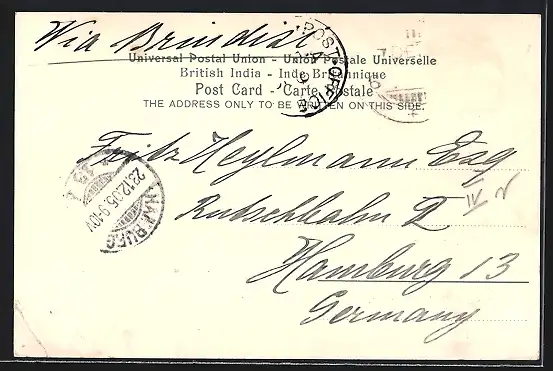 Via Brindisi
Universal Postal Union - Union Postale Universelle
British India - Inde Britannique
Post Card - Carte Postale
THE ADDRESS ONLY TO BE WRITTEN ON THIS SIDE.
POST OFFICE
Fritz Heylmann Esq
Rutschbahn
Hamburg 13
Germany
HAMBURG
23.12.05.9-10V